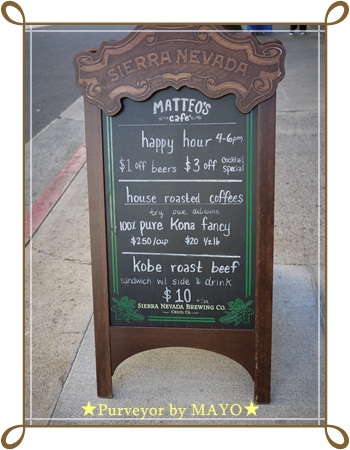 SIERRA NEVADA
MATTEO'S
cafe
happy hour 4-6pm
$1 off beers $3 off Cocktail Special
house roasted coffees
try our delicious
100% pure Kona fancy
$2.50/cup $20 ½lb
kobe roast beef
sandwich w/ side & drink
$10
SIERRA NEVADA BREWING CO.
CHICO, CA
★Purveyor by MAYO★